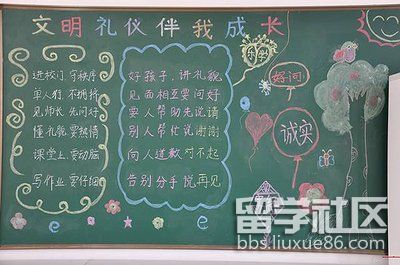 文明礼仪伴我成长
进校门，守秩序
单人行，不拥挤
见师长，先问好
懂礼貌，要热情
课堂上，要动脑
写作业，要仔细
好孩子，讲礼貌
见面相互要问好
要人帮助先说请
别人帮忙说谢谢
向人道歉对不起
告别分手说再见
乐学
好问
诚实
e
e
留学社区
bbs.liuxue86.com